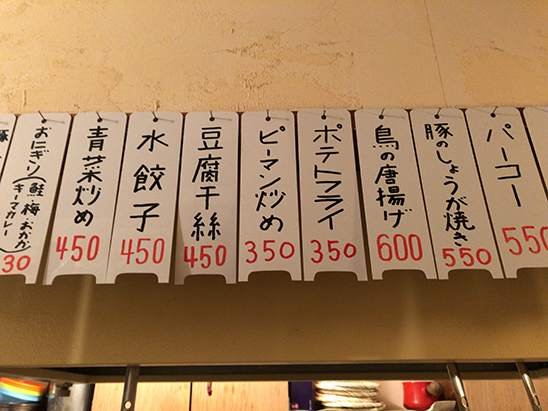 パーコー
550
豚のしょうが焼き
550
鳥の唐揚げ
600
ポテトフライ
350
ピーマン炒め
350
豆腐干絲
450
水餃子
450
青菜炒め
450
おにぎり(鮭 梅 おかか
キーマカレー)
30